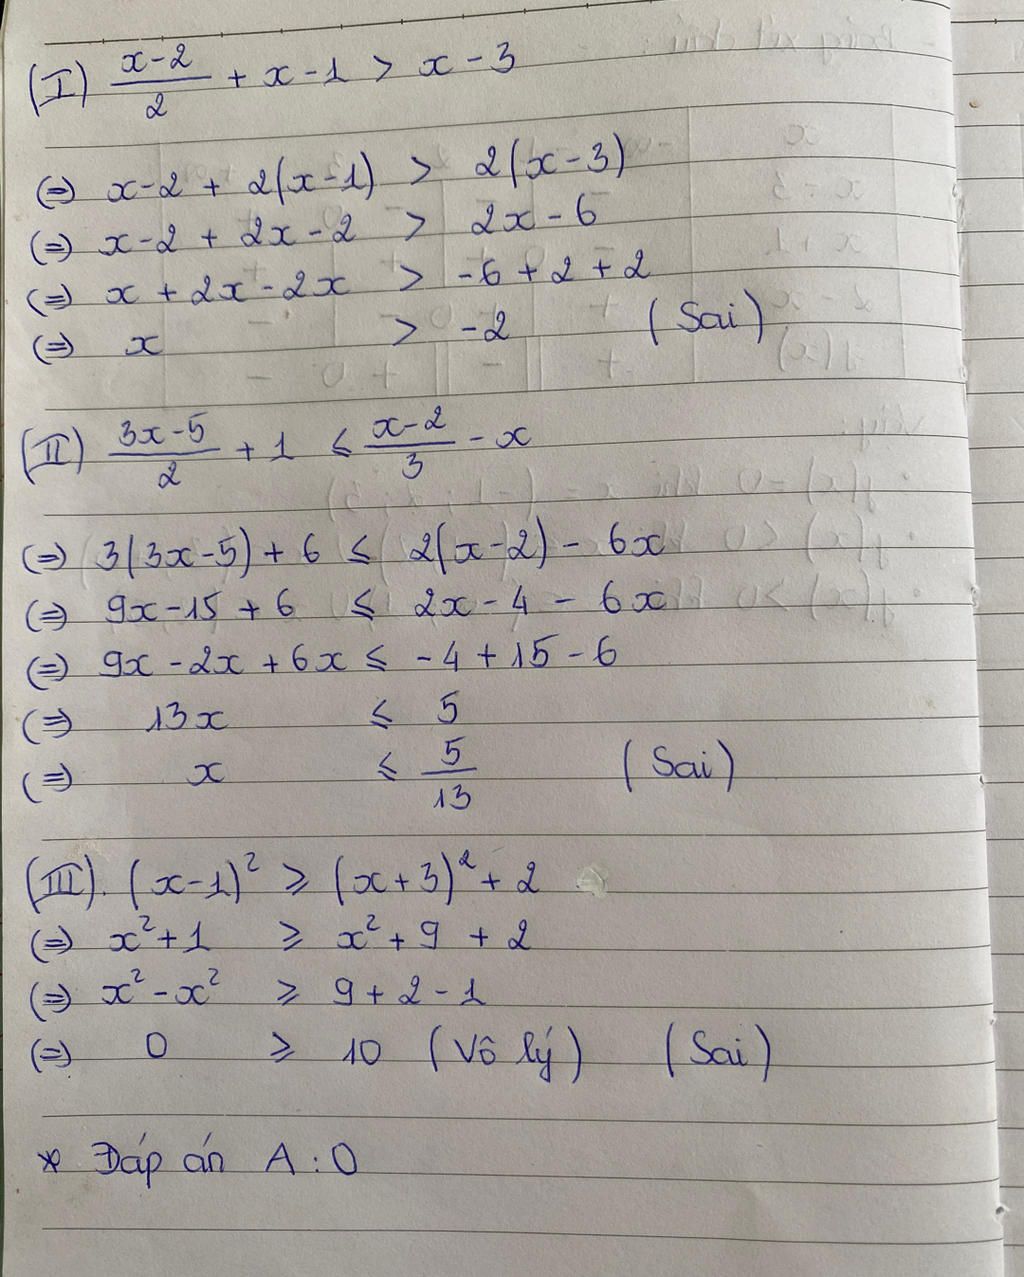 (I) x-2/2 + x-1 > x-3
(=) x-2 + 2(x-1) > 2(x-3)
(=) x-2 + 2x-2 > 2x-6
(=) x + 2x-2x > -6+2+2
(=) x > -2 (Sai)
(II) 3x-5/2 + 1 ≤ x-2/3 - x
(=) 3(3x-5)+6 ≤ 2(x-2)- 6x
(=) 9x-15+6 ≤ 2x-4-6x
(=) 9x-2x+6x ≤ -4+15-6
(=) 13x ≤ 5
(=) x ≤ 5/13 (Sai)
(III). (x-1)² ≥ (x+3)²+2
(=) x²+1 ≥ x²+9+2
(=) x²-x² ≥ 9+2-1
(=) 0 ≥ 10 (Vô lý) (Sai)
* Đáp án A:0